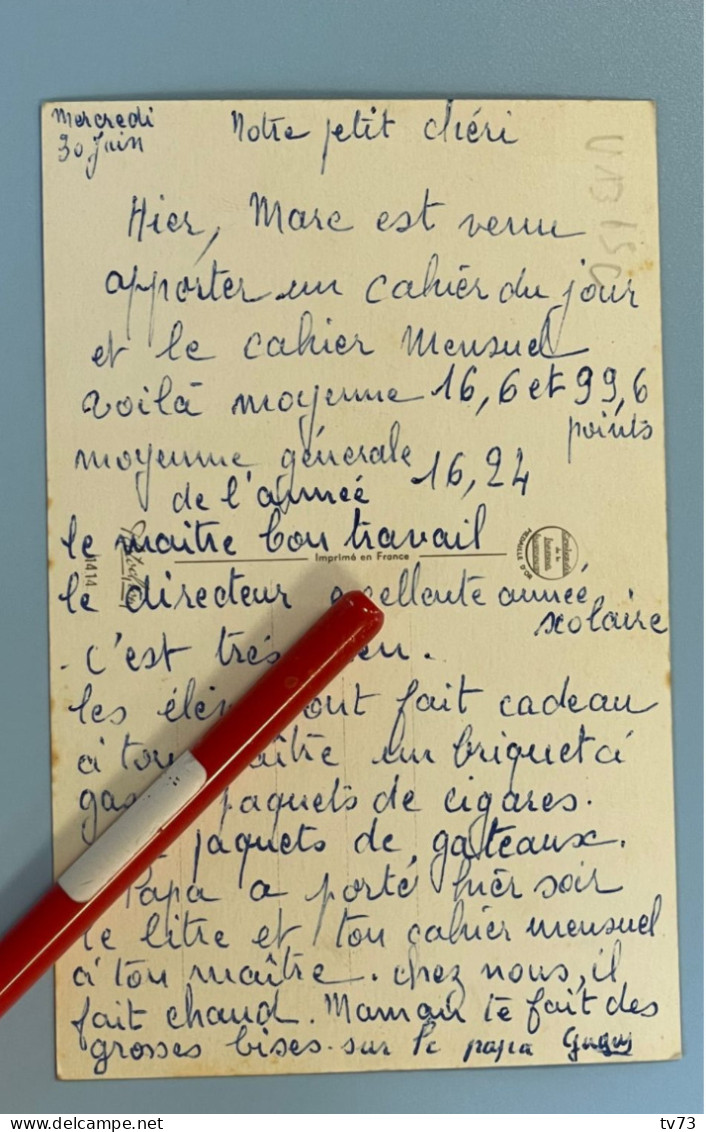 Mercredi
30 Juin
Notre petit chéri
Hier, Marc est venu
apporter un cahier du jour
et le cahier mensuel
voilà moyenne 16,6 et 99,6
points
moyenne générale 16,24
de l'année
le maître bon travail
Imprimé en France
1414
le directeur excellente année
scolaire
. c'est très
les ont fait cadeau
à ton un briquet à
paquets de cigares.
paquets de gateaux.
Papa a porté hier soir
le litre et ton cahier mensuel
à ton maître. chez nous, il
fait chaud. Maman te fait des
grosses bises. sur le papa
tv73